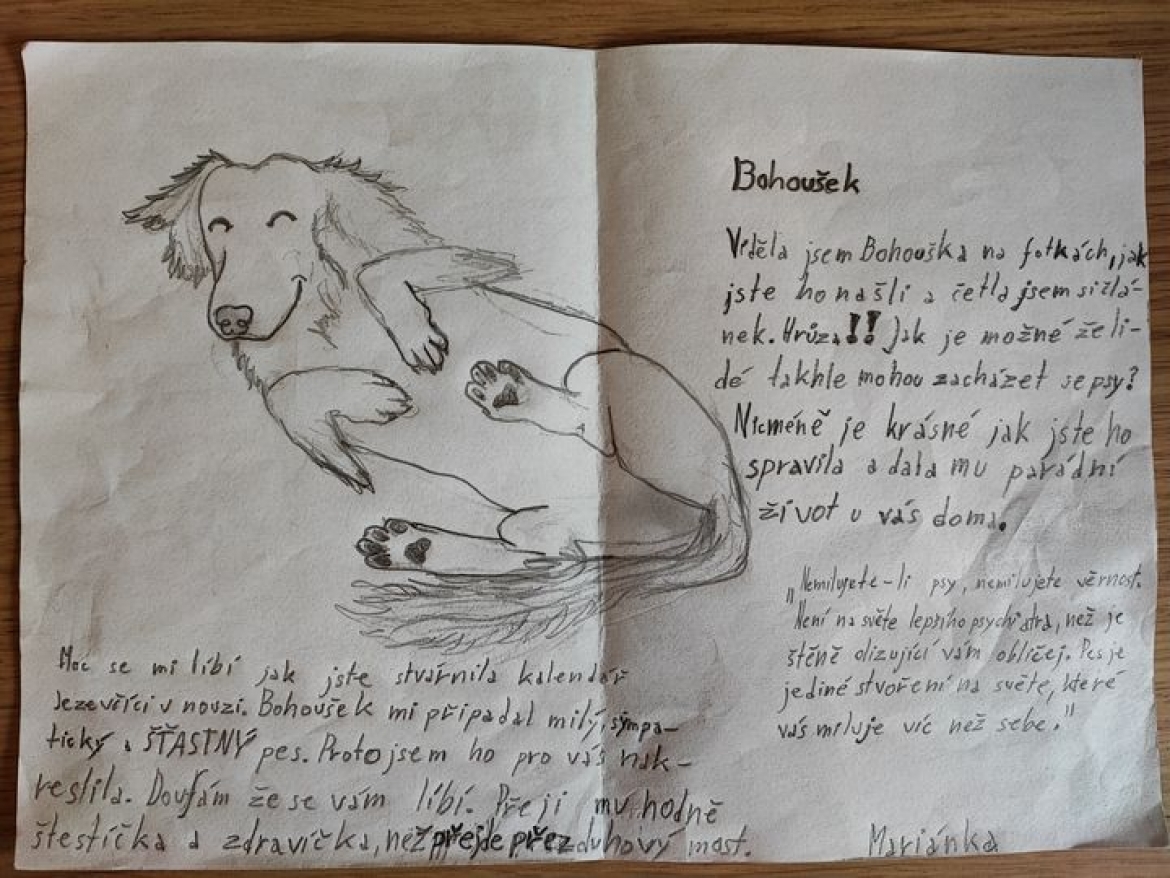 Bohoušek
Viděla jsem Bohouška na fotkách, jak
jste ho našli a četla jsem si člá-
nek. Hrůza!! Jak je možné že li-
dé takhle mohou zacházet se psy?
Nicméně je krásné jak jste ho
spravila a dala mu parádní
život u vás doma.
„Nemilujete-li psy, nemilujete věrnost.
Není na světe lepšího psychiatra, než je
štěně olizující vám obličej. Pes je
jediné stvoření na světe, které
vás miluje víc než sebe."
Moc se mi líbí jak jste stvárnila kalendář
Jezevčíci v nouzi. Bohoušek mi připadal milý, sympa-
tický a ŠŤASTNÝ pes. Proto jsem ho pro vás nak-
reslila. Doufám že se vám líbí. Přeji mu hodně
štestíčka a zdravíčka, než přejde přez duhový most.
Mariánka